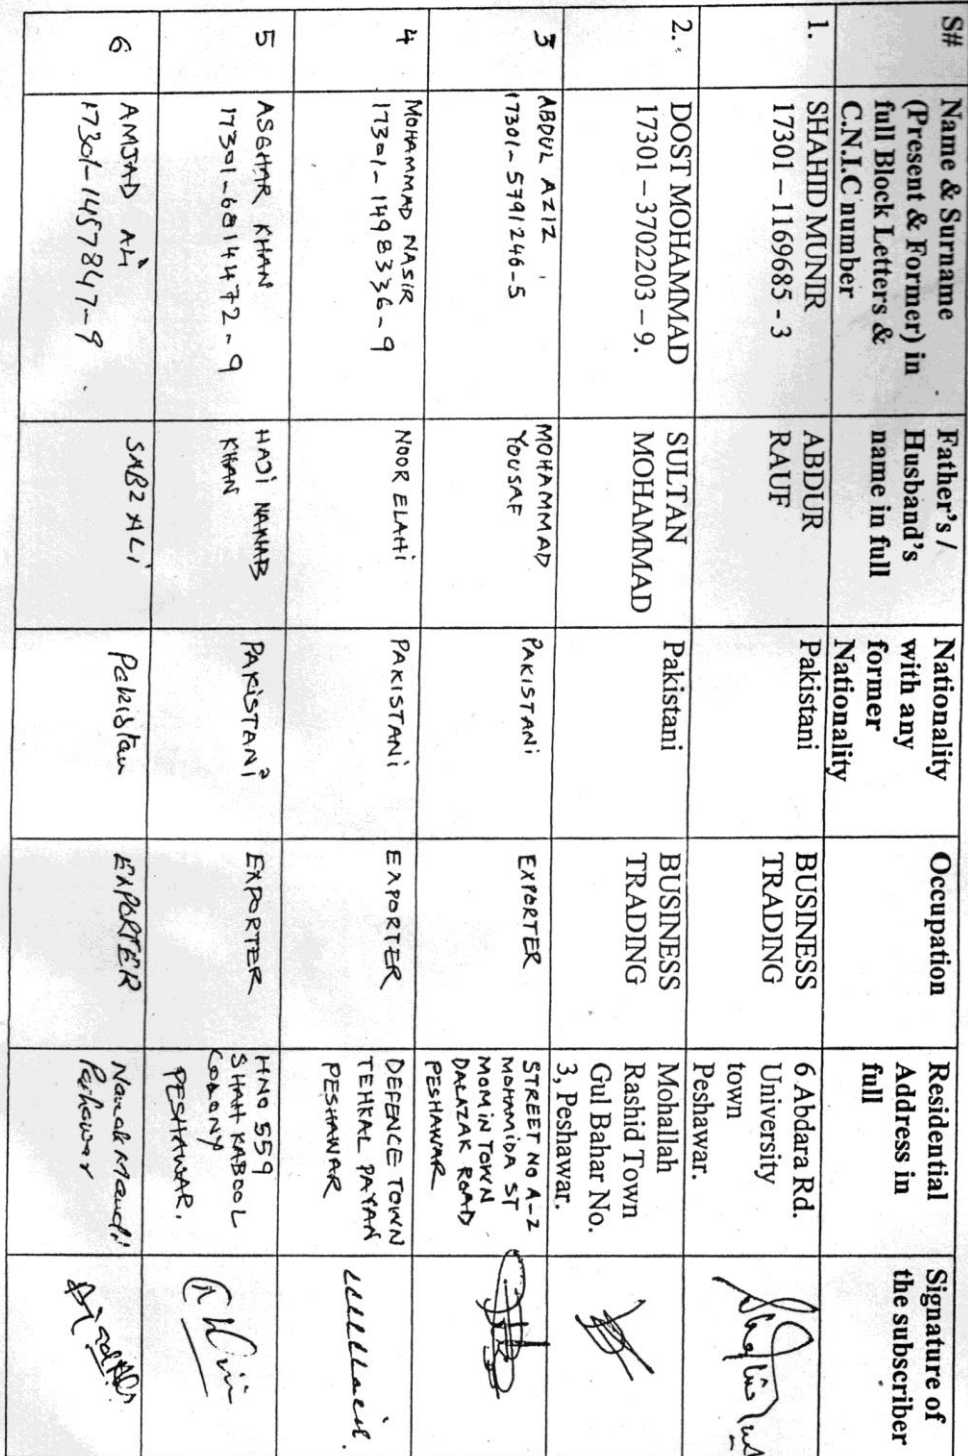 S#
Name & Surname
(Present & Former) in
full Block Letters &
C.N.I.C number
Father's /
Husband's
name in full
Nationality
with any
former
Nationality
Occupation
Residential
Address in
full
Signature of
the subscriber
1.
SHAHID MUNIR
17301 – 1169685 - 3
ABDUR
RAUF
Pakistani
BUSINESS
TRADING
6 Abdara Rd.
University
town
Peshawar.
2.
DOST MOHAMMAD
17301 – 3702203 – 9.
SULTAN
MOHAMMAD
Pakistani
BUSINESS
TRADING
Mohallah
Rashid Town
Gul Bahar No.
3, Peshawar.
3
ABDUL AZIZ
17301-5791246-5
MOHAMMAD
YOUSAF
PAKISTANI
EXPORTER
STREET NO A-2
MOHAMIDA ST
MOMIN TOWN
DALAZAK ROAD
PESHAWAR
4
MOHAMMAD NASIR
17301-1498336-9
NOOR ELAHI
PAKISTANI
EXPORTER
DEFENCE TOWN
TEHKAL PAYAN
PESHAWAR
5
ASGHAR KHAN
17301-6814472-9
HAJI NAWAB
KHAN
PAKISTANI
EXPORTER
HNO 559
SHAH KABOOL
COLONY
PESHAWAR.
6
AMJAD ALI
17301-1457847-9
SABZ ALI
Pakistan
EXPORTER
Namak Mandi
Peshawar